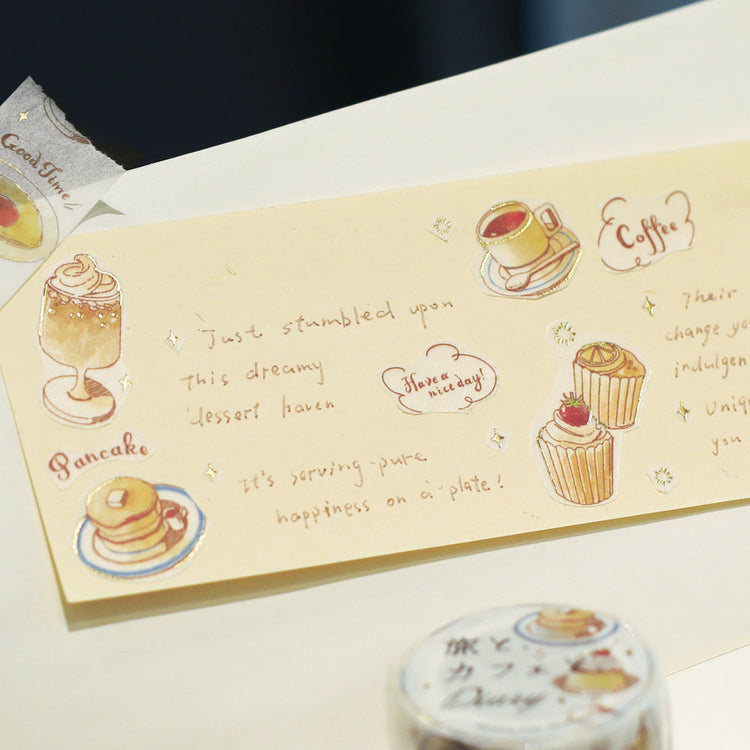 Good Time
Just stumbled upon
this dreamy
dessert haven
Have a
nice day!
Coffee
Their
change yo
indulgen
Uniq
you
Pancake
it's serving pure
happiness on a plate!
旅と
カフェと
Diary